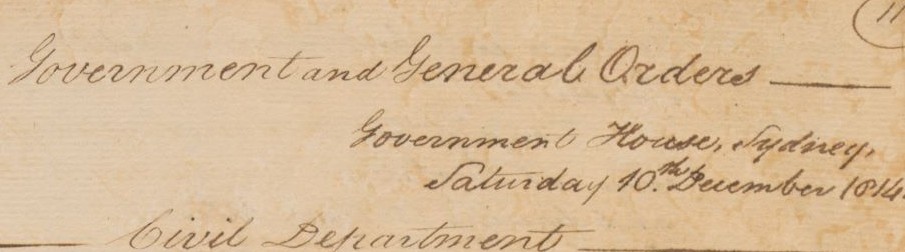 11
Government and General Orders
Government House, Sydney,
Saturday 10.th December 1814.
Civil Department